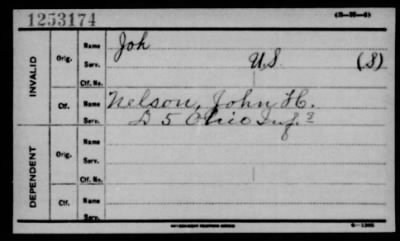 1253174
INVALID
Orig.
Name Joh
Serv. U.S. (S)
Ctf. No.
Ctf.
Name Nelson, John H.
Serv. D 5 Ohio Inf.
DEPENDENT
Orig.
Name
Serv.
Ctf. No.
Ctf.
Name
Serv.